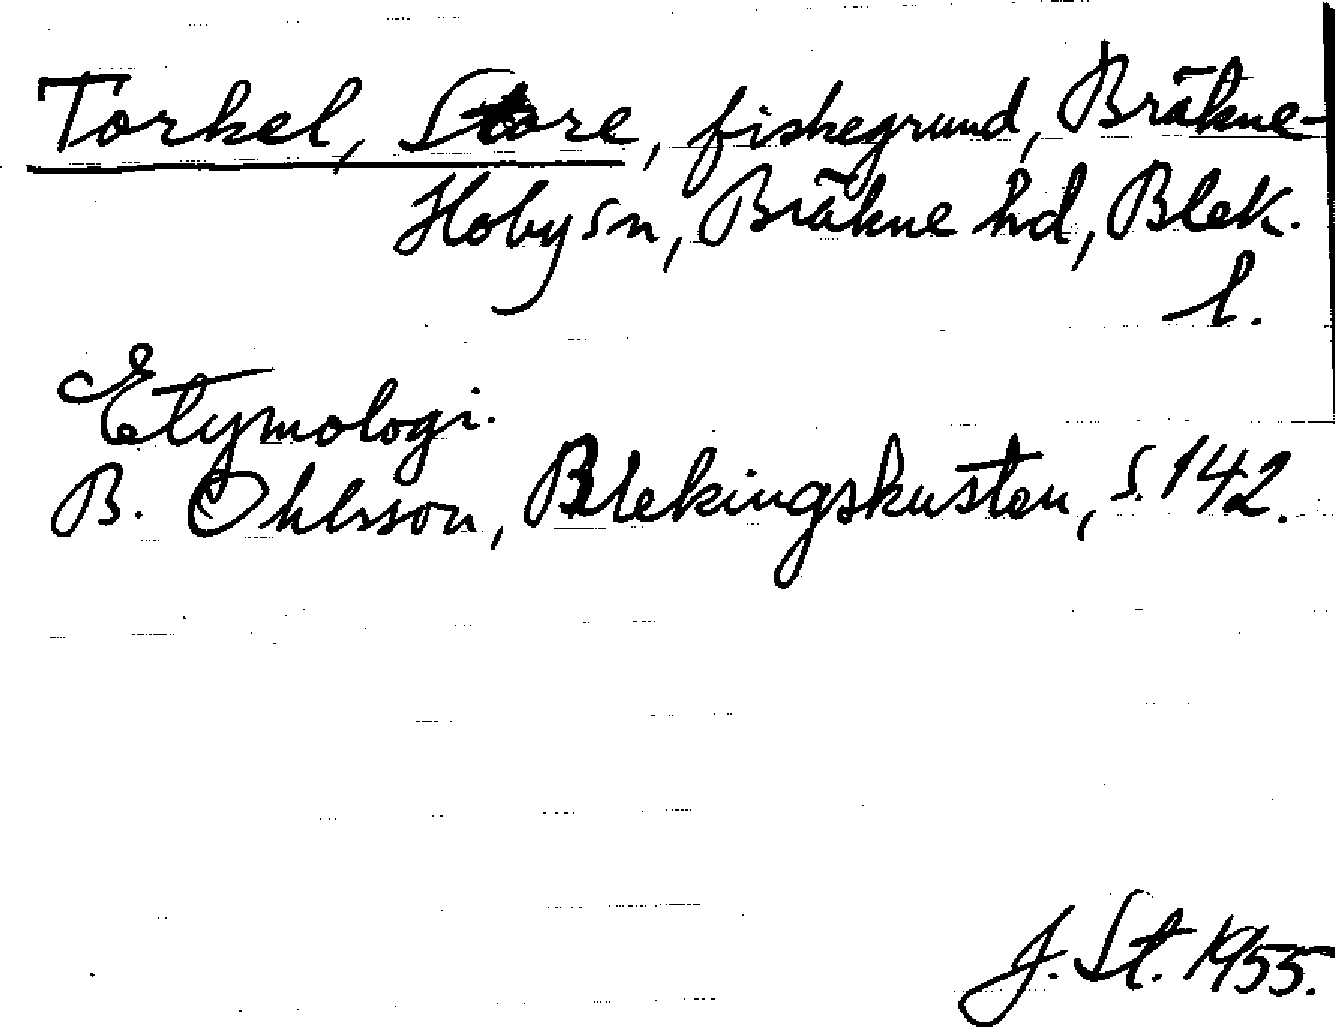 Torkel, Store, fiskegrund, Bräkne-
Hoby sn, Bräkne hd, Blek.
l.
Etymologi.
B. Ohlsson, Blekingskusten, s. 142.
J. St. 1955.